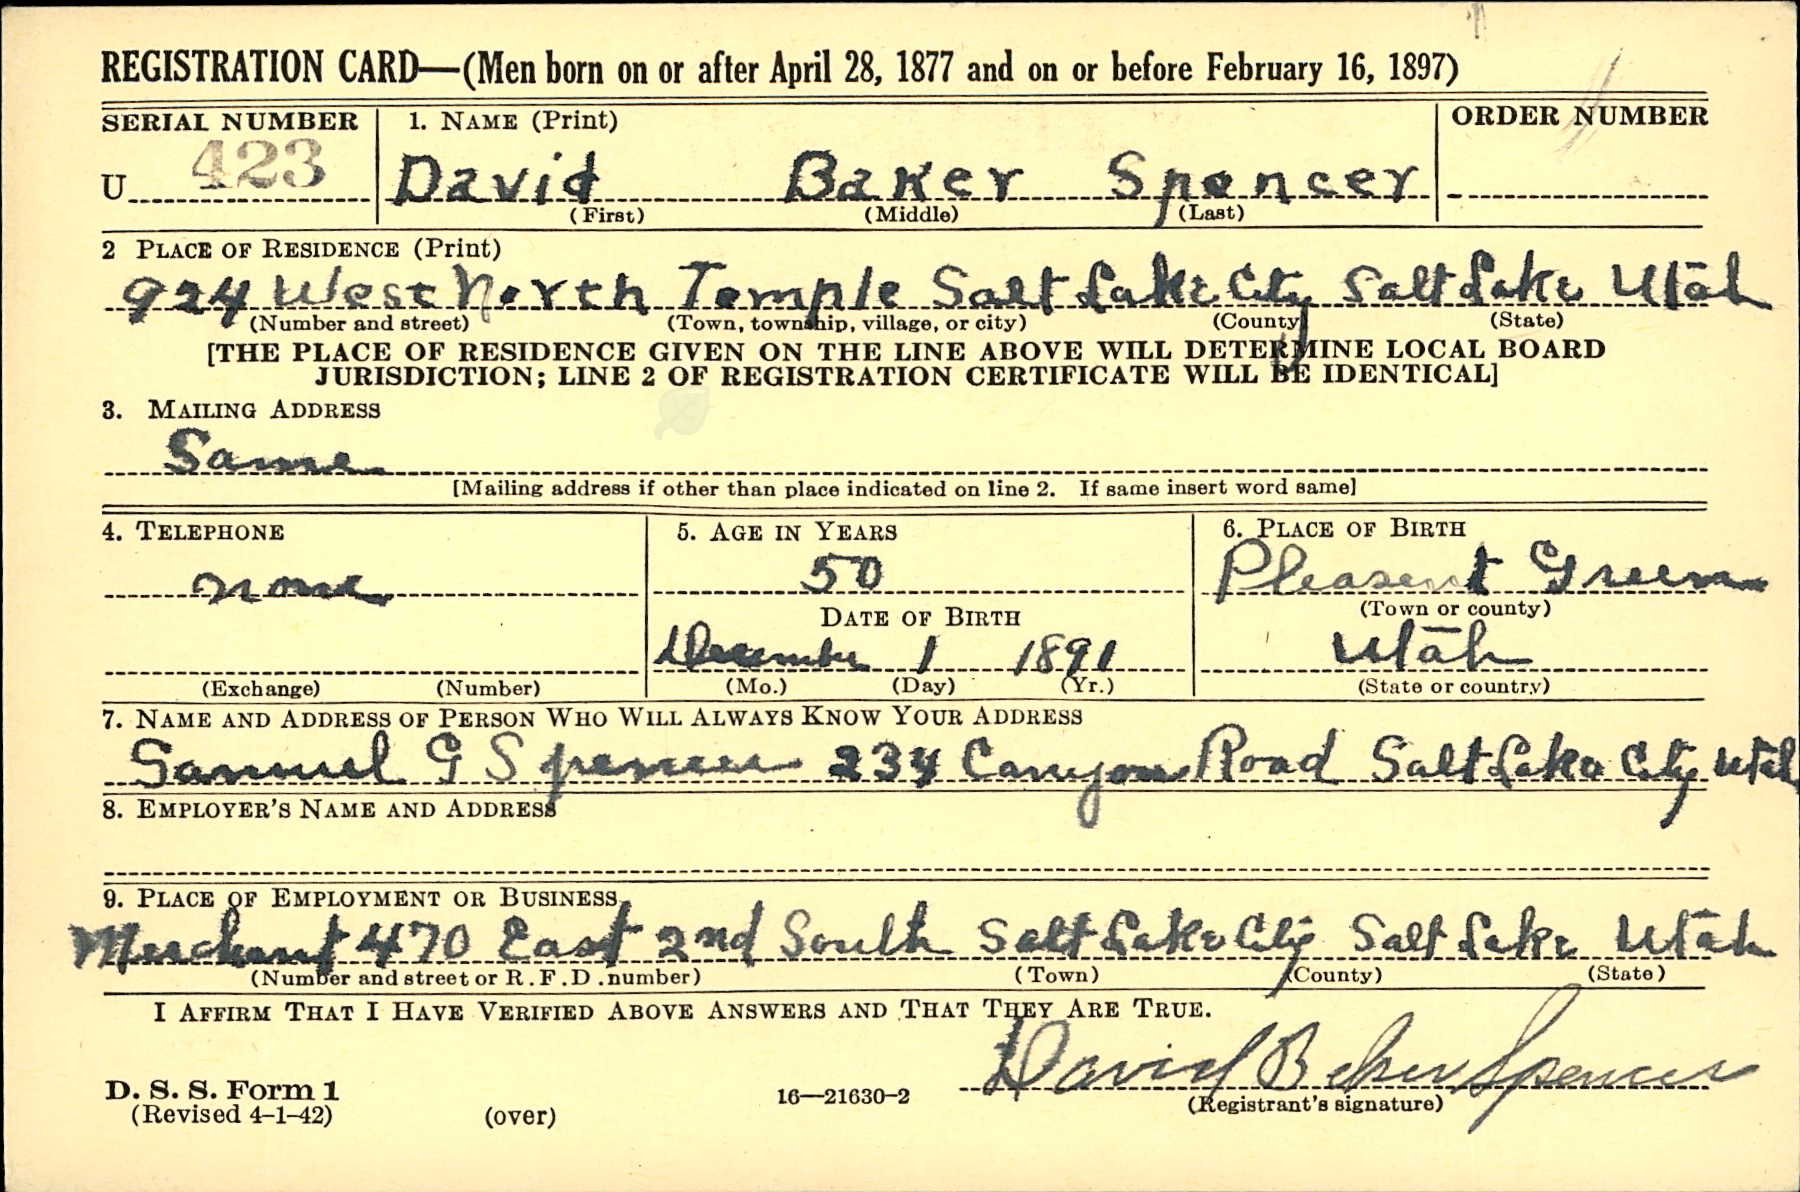 REGISTRATION CARD—(Men born on or after April 28, 1877 and on or before February 16, 1897)
SERIAL NUMBER 1. NAME (Print) ORDER NUMBER
U 423 David Baker Spencer
(First) (Middle) (Last)
2 PLACE OF RESIDENCE (Print)
924 West North Temple Salt Lake City Salt Lake Utah
(Number and street) (Town, township, village, or city) (County) (State)
[THE PLACE OF RESIDENCE GIVEN ON THE LINE ABOVE WILL DETERMINE LOCAL BOARD
JURISDICTION; LINE 2 OF REGISTRATION CERTIFICATE WILL BE IDENTICAL]
3. MAILING ADDRESS
Same
[Mailing address if other than place indicated on line 2. If same insert word same]
4. TELEPHONE 5. AGE IN YEARS 6. PLACE OF BIRTH
none 50 Pleasent Green
DATE OF BIRTH (Town or county)
December 1 1891 Utah
(Exchange) (Number) (Mo.) (Day) (Yr.) (State or country)
7. NAME AND ADDRESS OF PERSON WHO WILL ALWAYS KNOW YOUR ADDRESS
Samuel G Spencer 234 Canyon Road Salt Lake City Utah
8. EMPLOYER'S NAME AND ADDRESS
9. PLACE OF EMPLOYMENT OR BUSINESS
Merchant 470 East 2nd South Salt Lake City Salt Lake Utah
(Number and street or R.F.D. number) (Town) (County) (State)
I AFFIRM THAT I HAVE VERIFIED ABOVE ANSWERS AND THAT THEY ARE TRUE.
David Baker Spencer
D. S. S. Form 1
(Revised 4-1-42) (over) 16—21630-2 (Registrant's signature)